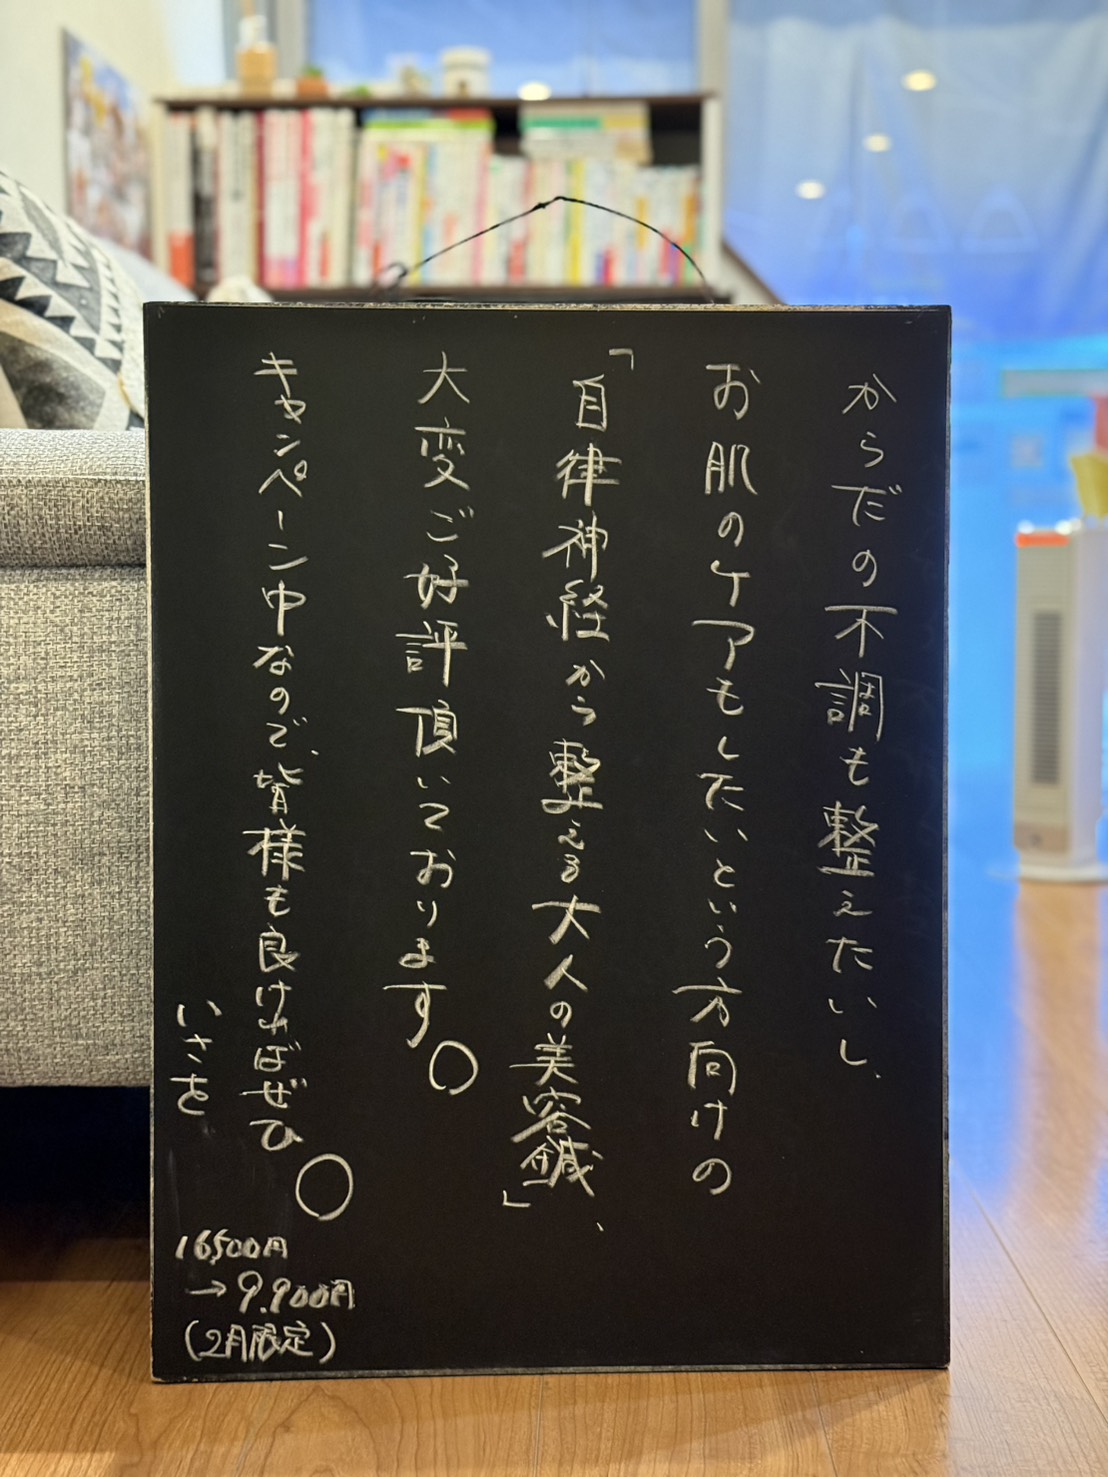 からだの不調も整えたいし、
お肌のケアもしたいという方向けの
「自律神経から整える大人の美容鍼」、
大変ご好評頂いております。
キャンペーン中なので、皆様も良ければぜひ。
いさを
16500円
→9.900円
(2月限定)